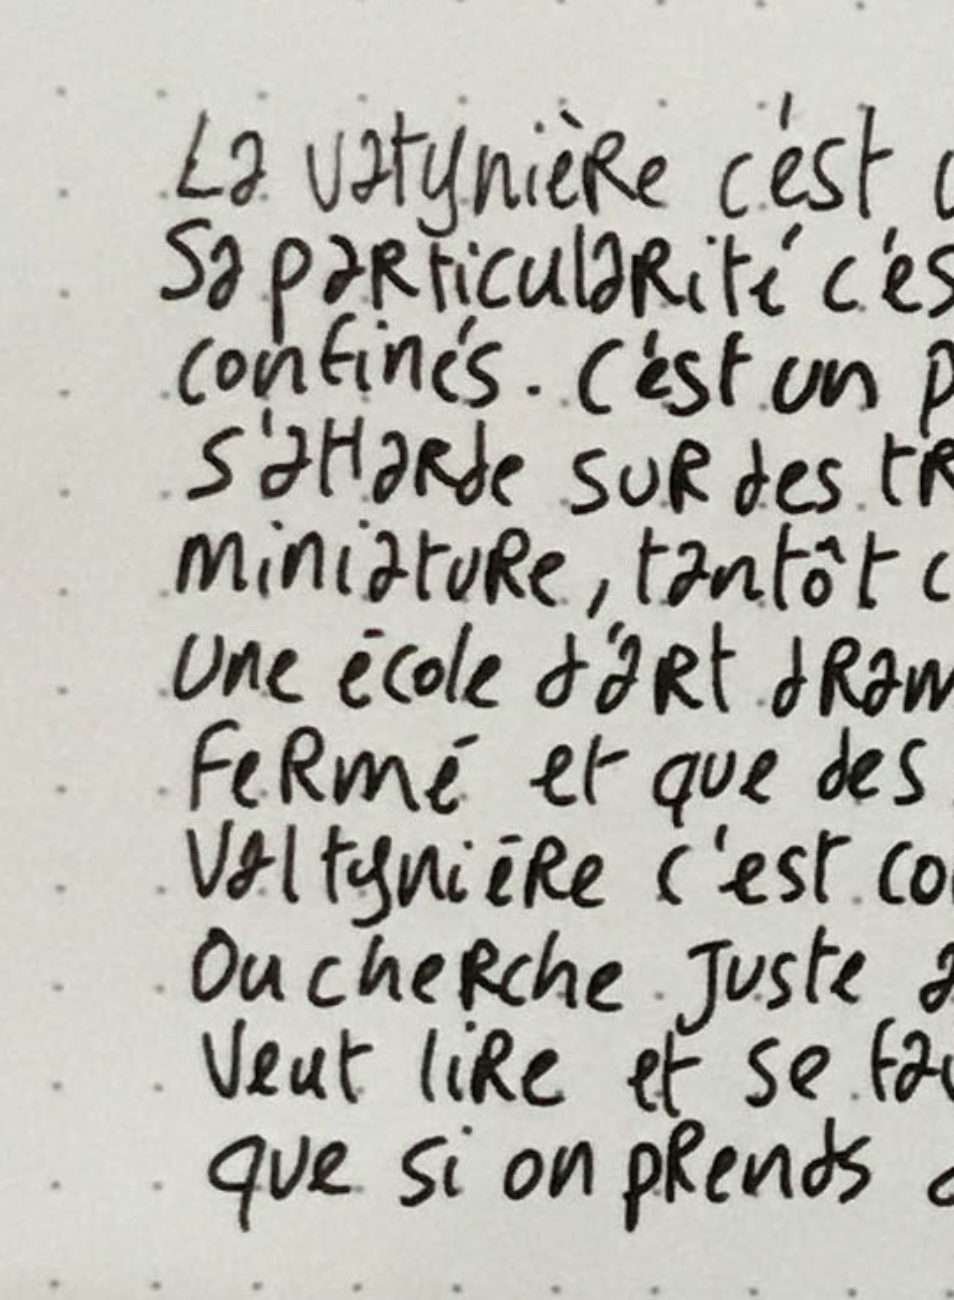 La vatynière c'est
Sa particularité c'es
confinés. C'est un p
s'attarde sur des tR
miniature, tantôt c
Une école d'art dram
Fermé et que des
Valtynière c'est co
Ou cherche juste a
Veut lire et se fau
que si on prends